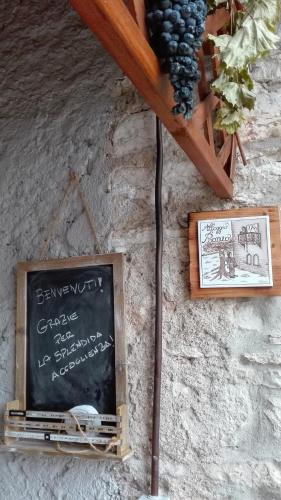 BENVENUTI!
GRAZIE
PER
LA SPLENDIDA
ACCOGLIENZA!
Alloggio
Il